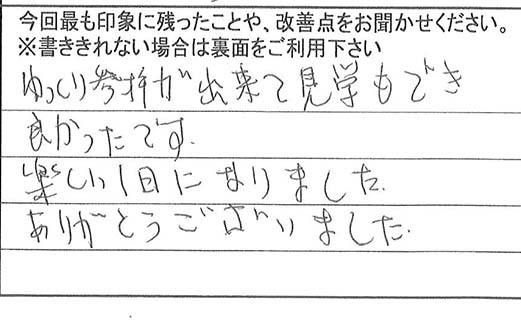 今回最も印象に残ったことや、改善点をお聞かせください。
※書ききれない場合は裏面をご利用下さい
ゆっくり参拝が出来て見学もでき
良かったです.
楽しい1日になりました.
ありがとうございました.